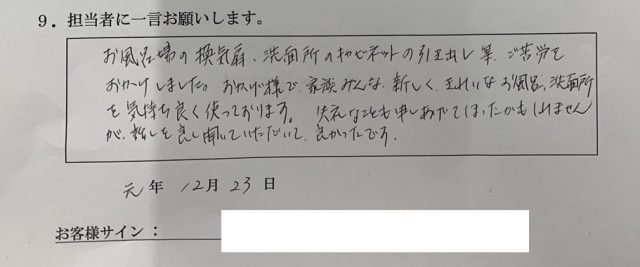 9. 担当者に一言お願いします。
お風呂場の換気扇、洗面所のキャビネットの引き出し等、ご苦労を
おかけしました。おかげ様で、家族みんな、新しく、きれいなお風呂、洗面所
を気持ち良く使っております。失礼なことも申しあげてしまったかもしれません
が、話しを良く聞いていただいて、良かったです。
元年 12月 23日
お客様サイン：